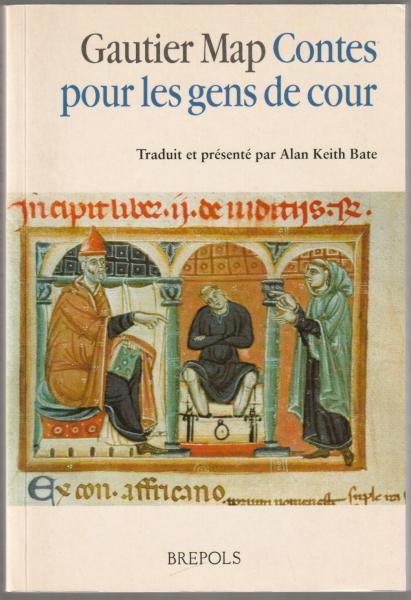 Gautier Map Contes
pour les gens de cour
Traduit et présenté par Alan Keith Bate
Incipit liber. ij. de iuditijs. R.
Ex con. affricano
BREPOLS